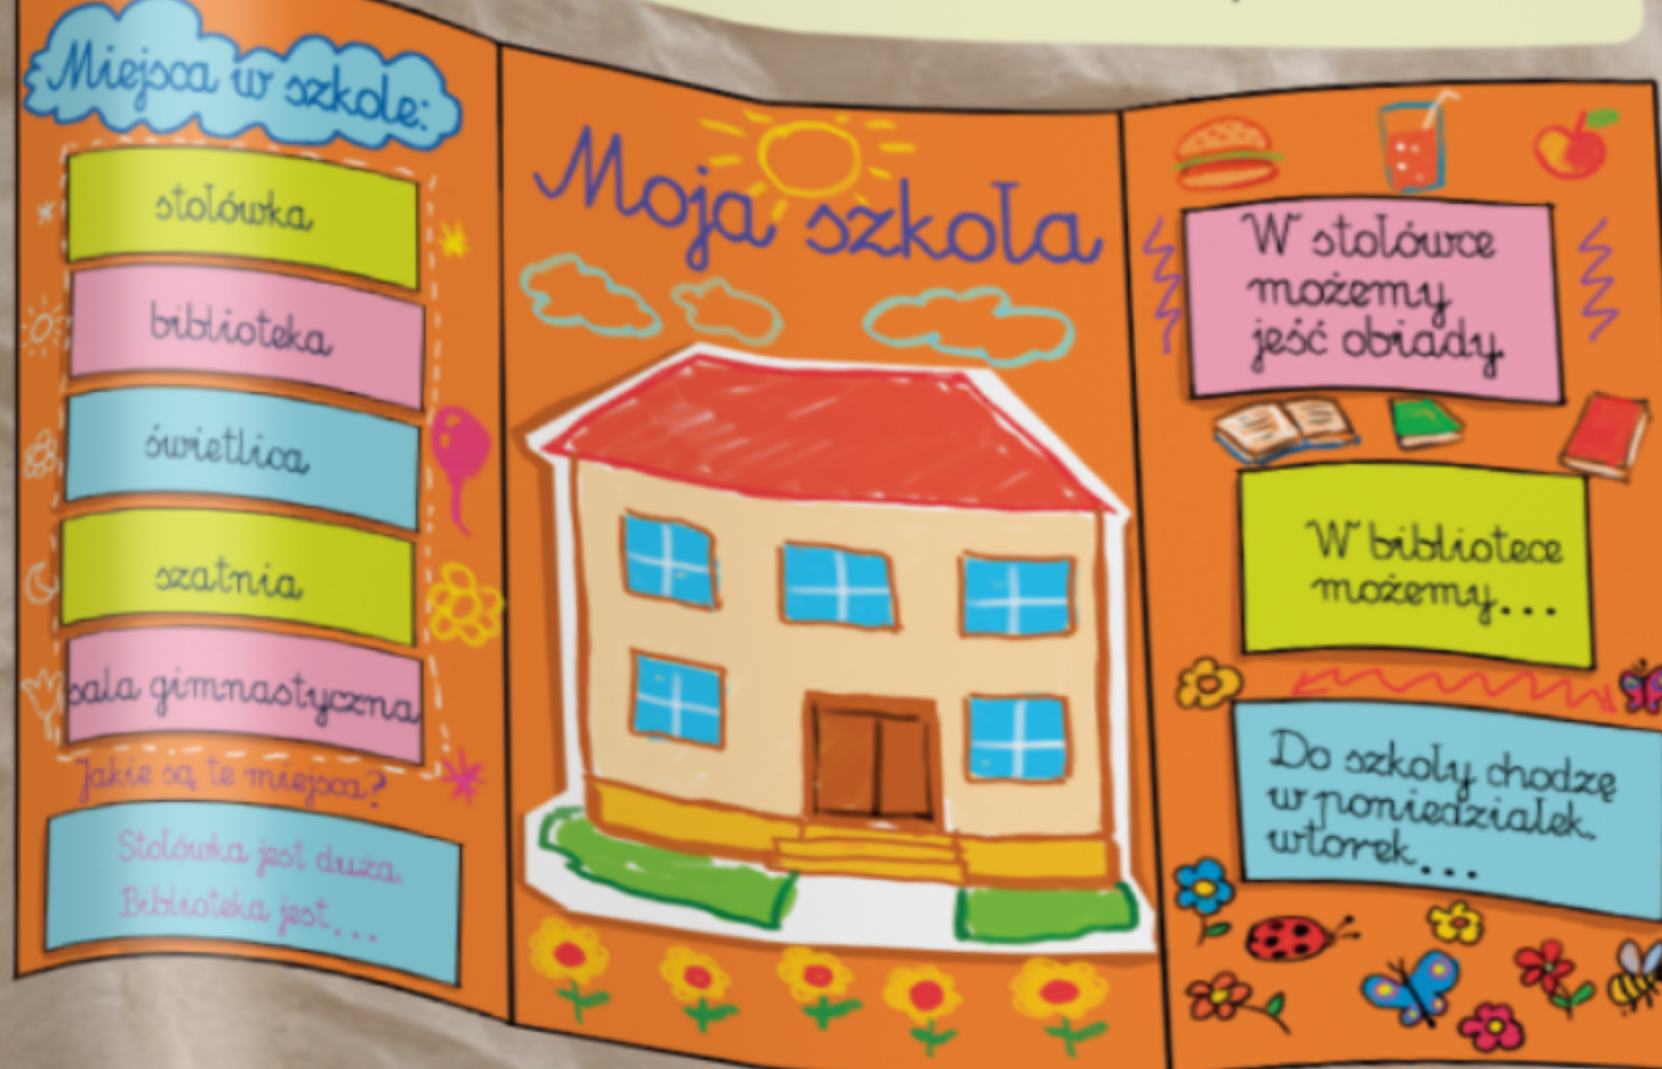 Miejsca w szkole:
stołówka
biblioteka
świetlica
szatnia
sala gimnastyczna
Jakie są te miejsca?
Stołówka jest duża.
Biblioteka jest...
Moja szkoła
W stołówce
możemy
jeść obiady.
W bibliotece
możemy...
Do szkoły chodzę
w poniedziałek,
wtorek...